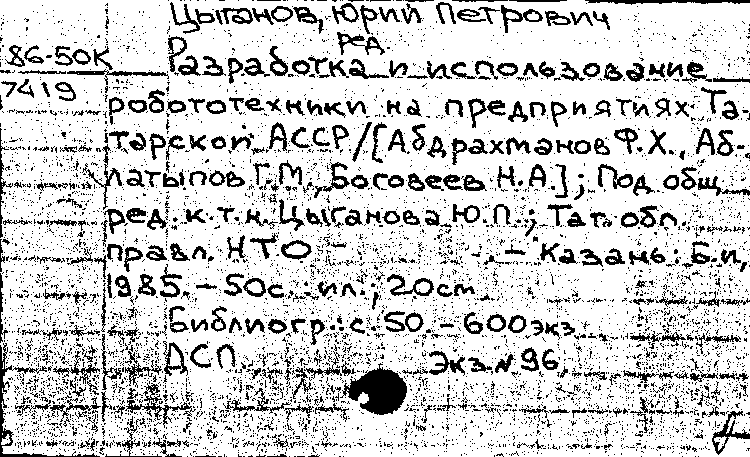 Цыганов, Юрий Петрович
ред.
86-50К
Разработка и использование
7419
робототехники на предприятиях Та-
тарской АССР/[Абдрахманов Ф.Х., Аб-
латыпов Г.М., Боговеев Н.А.]; Под общ.
ред. к.т.н. Цыганова Ю.П.; Тат. обл.
правл. НТО - . - Казань: Б.и,
1985. - 50с. : ил.; 20см
Библиогр.: с. 50. - 600экз
ДСП. Экз. № 96.